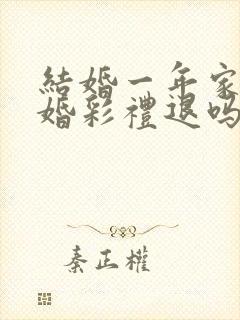 結婚一年家
婚彩禮退嗎
秦正權